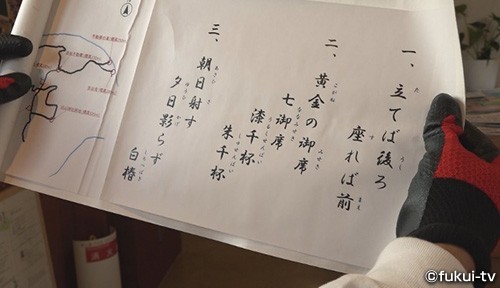 一、立てば後ろ
座れば前
二、黄金の御席
七御席
漆千杯
朱千杯
三、朝日射す
夕日影らず
白椿
©fukui-tv